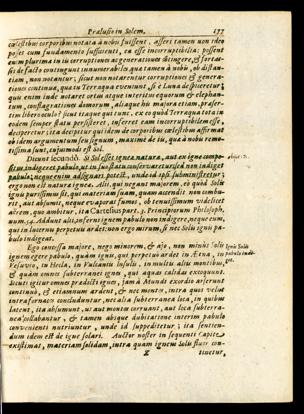 Prælusio in Solem. 177
cælestibus corporibus notata à nobis fuissent, asseri tamen non ideo
posset cum fundamento sufficienti, ea esse incorruptibilia: possent
enim plurima in iis corruptiones ac generationes contingere, & fortas-
sis de facto contingunt innumerabiles, quæ tamen à nobis, ob distan-
tiam, non notantur; sicut non notarentur corruptiones & genera-
tiones continuæ, quæ in Terraquea eveniunt, si è Luna despiceretur;
quis enim inde notaret ortum atque interitus equorum & elephan-
tum, conflagrationes domorum, aliaque his majora etiam, præser-
tim libero oculo? sicut itaque qui tunc, ex eo quòd Terraquea tota in
eodem semper statu persisteret, inferret eam incorruptibilem esse,
deciperetur; ita decipitur qui idem de corporibus cælestibus affirmat
ob idem argumentum seu signum, maximè de iis, quæ à nobis remo-
tissima sunt, cujusmodi est Sol.
Dicunt secundò. Si Sol esset ignea natura, aut ex igne compo-
situs, indigeret pabulo, ut in suo statu conservaretur; sed non indiget
pabulo, neque enim adsignari potest, unde id ipsi subministretur;
ergo non est naturæ igneæ. Alii, qui negant majorem, eò quòd Solis
ignis purissimus sit, qui materiam suam, quam ascendit non combu-
rit, aut absumit, neque evaporat fumos, ob tenuissimum videlicet
aërem, quo ambitur, ita Cartesius part. 3. Principiorum Philosoph.
num. Addunt alii, inferni ignem pabulo non indigere, neque eum,
qui in lucernu perpetuis ardet: ergo mirum, si nec Solis ignis pa-
bulo indigeat.
Ego concessa majore, nego minorem, & ajo, non minùs Solis
ignem egere pabulo, quàm ignis, qui perpetuò ardet in Ætna, in
Vesuvio, in Hecla, in Vulcanis Insulis, in multis aliis montibus,
& quàm omnes subterranei ignes, qui aquas calidas excoquunt.
Sicut igitur omnes prædicti ignes, jam à Mundi exordio arserunt
continuò, & etiamnum ardent, & nec montes, intra quos velut
intra fornacem concluduntur, nec alia subterranea loca, in quibus
latent, ita absumunt, ut aut montes corruant, aut loca subterra-
nea collabantur, & tamen absque dubitatione interim pabulo
convenienti nutriuntur, unde id suppeditetur; ita sentien-
dum idem est de igne solari. Auctor noster in sequenti Capite
existimat, materiam solidam, intra quam ignem Solis fluir con-
Z tinetur,
Ignis Solis
pabulo indi-
get.